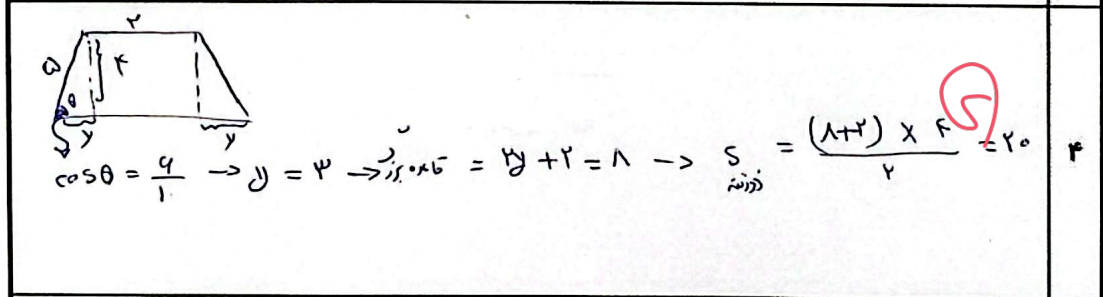 ۲
۵ ۴
θ
y y
cosθ = ۶/۱۰ → y = ۳ → قاعده بزرگ = ۲y + ۲ = ۸ → S ذوزنقه = (۸+۲) × ۴ / ۲ = ۲۰ ۴